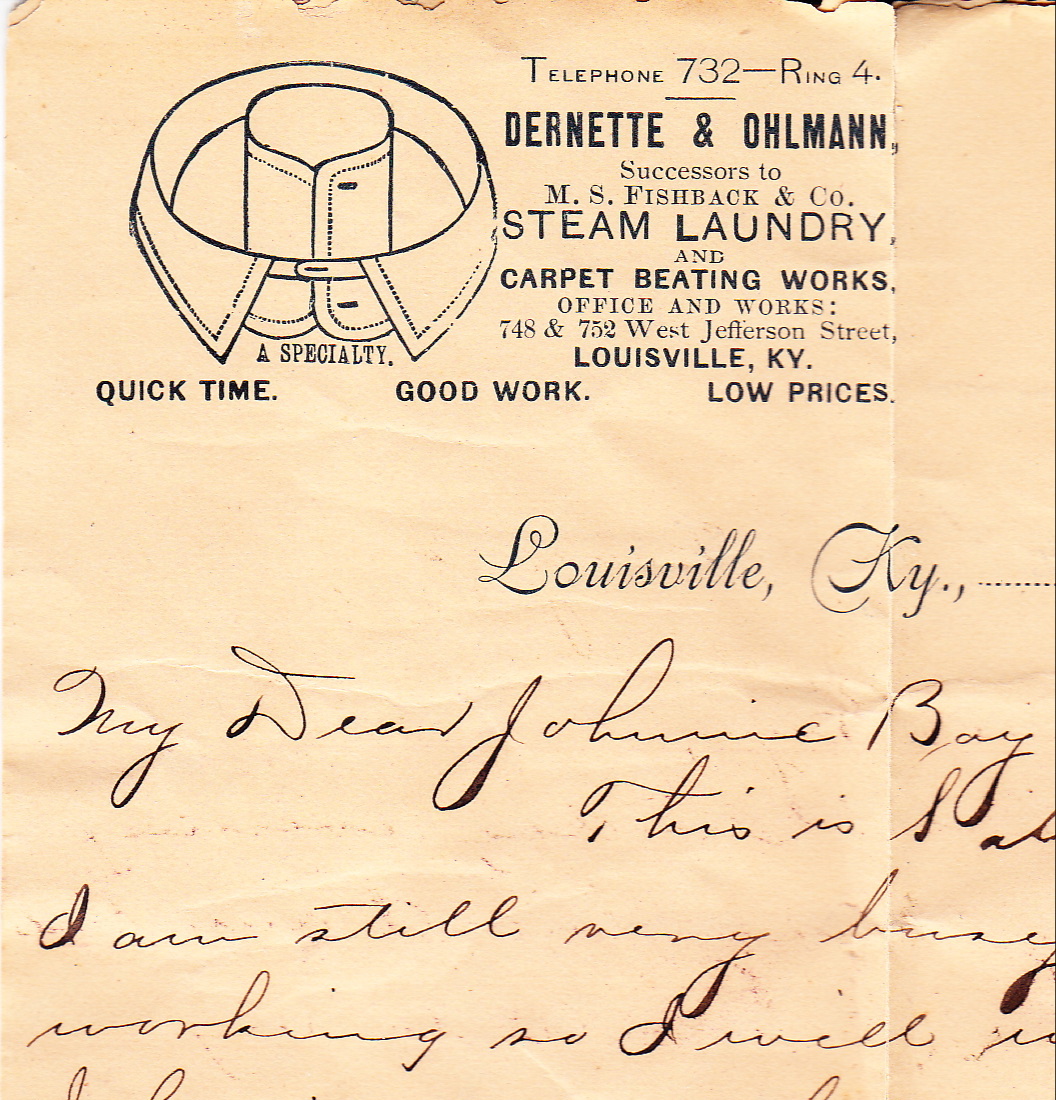 TELEPHONE 732—RING 4.
DERNETTE & OHLMANN,
Successors to
M. S. FISHBACK & CO.
STEAM LAUNDRY,
AND
CARPET BEATING WORKS,
OFFICE AND WORKS:
748 & 752 West Jefferson Street,
LOUISVILLE, KY.
A SPECIALTY.
QUICK TIME. GOOD WORK. LOW PRICES.
Louisville, Ky.,
My Dear Johnnie Boy
This is
I am still very busy
working so I will